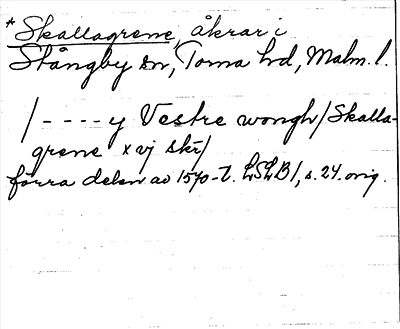 * Skallagrene, åkrar i
Stångby sn, Torna hd, Malm. l.
/ - - - - y Vestre wongh/Skalla-
grene x vj skr/
förra delen av 1570-t. LSLB 1, s. 24. orig.